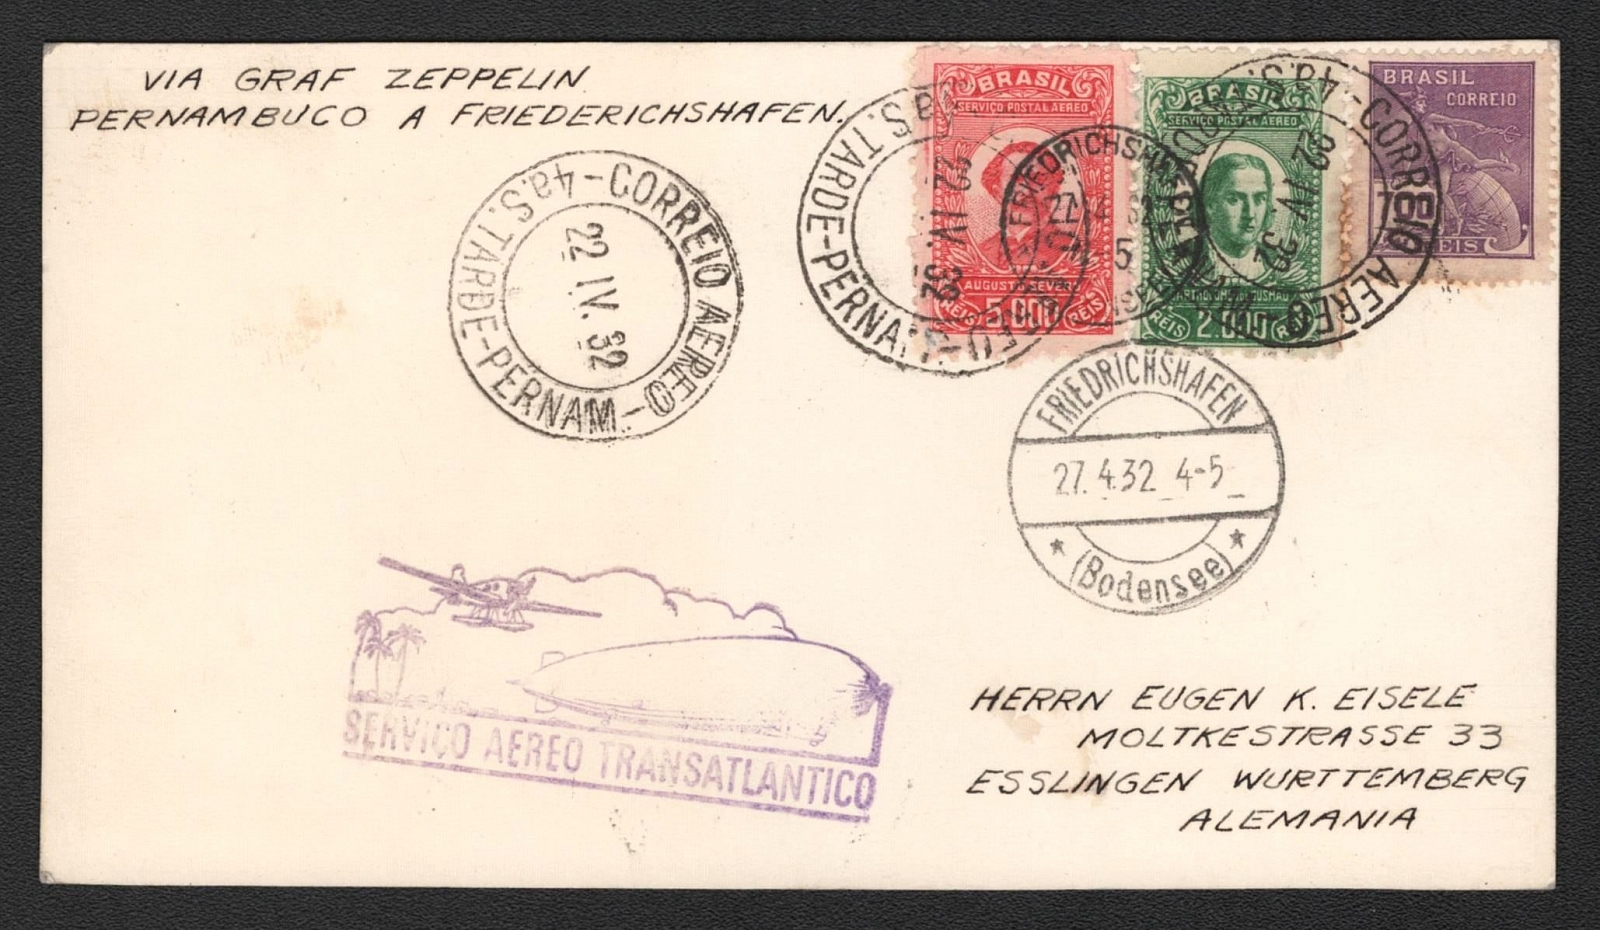 VIA GRAF ZEPPELIN
PERNAMBUCO A FRIEDERICHSHAFEN.
BRASIL
SERVIÇO POSTAL AEREO
AUGUSTO SEVERO
5.000
REIS
REIS
BRASIL
SERVIÇO POSTAL AEREO
REIS
2.000
BRASIL
CORREIO
REIS
4a.S.TARDE-PERNAM.
22 IV. 32
4a.S.TARDE-PERNAM.-CORREIO AEREO-
22 IV. 32
-CORREIO AEREO-
22 IV 32
FRIEDRICHSHAFEN
FRIEDRICHSHAFEN
27.4.32 4-5
(Bodensee)
SERVIÇO AEREO TRANSATLANTICO
HERRN EUGEN K. EISELE
MOLTKESTRASSE 33
ESSLINGEN WURTTEMBERG
ALEMANIA